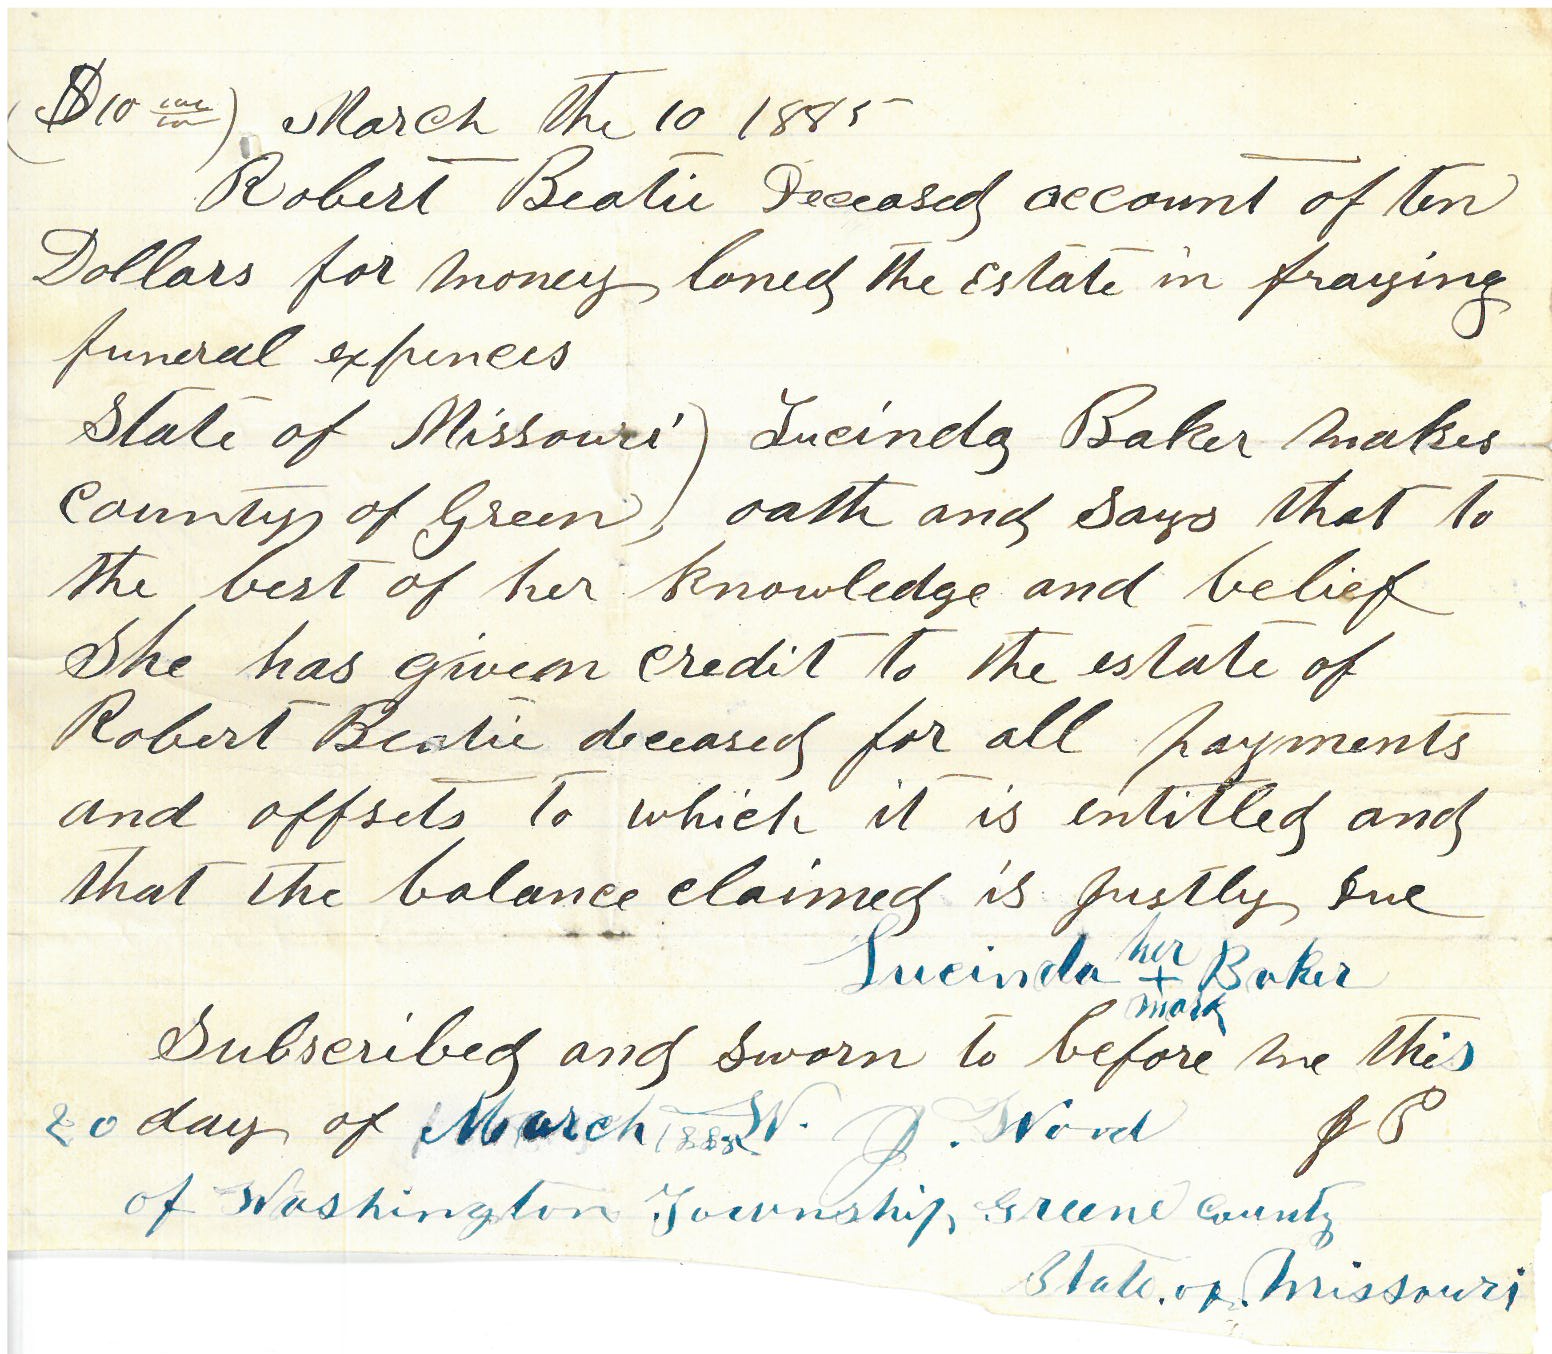 ($10 100/100) March the 10 1885
Robert Beatie Deceased account of ten
Dollars for money loned the Estate in fraying
funeral expences
State of Missouri) Lucinda Baker makes
County of Green) oath and says that to
the best of her knowledge and belief
She has given credit to the estate of
Robert Beatie deceased for all payments
and offsets to which it is entitled and
that the balance claimed is justly due
Lucinda her + mark Baker
Subscribed and sworn to before me this
20 day of March 1885 W. J. Wood J P
of Washington Township Greene County
State of Missouri